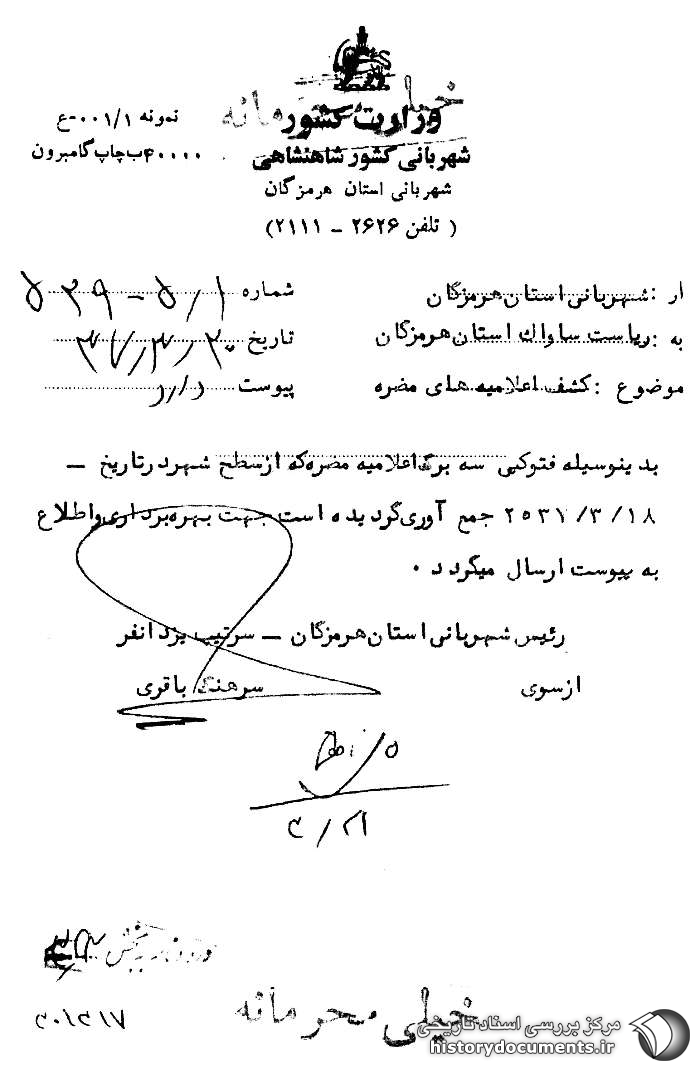 خیلی محرمانه
وزارت کشور
شهربانی کشور شاهنشاهی
شهربانی استان هرمزگان
( تلفن ۲۶۲۶ – ۲۱۱۱)
نمونه ۰۰۱/۱-ع
۴۰۰۰۰ب چاپ گامبرون
از : شهربانی استان هرمزگان
به : ریاست ساواک استان هرمزگان
موضوع : کشف اعلامیه های مضره
شماره ۵/۱ - ۵۲۹
تاریخ
پیوست دارد
بدینوسیله فتوکپی سه برگ اعلامیه مضره که از سطح شهر در تاریخ –
۲۵۳۷/۳/۱۸ جمع آوری گردیده است جهت بهره برداری و اطلاع
به پیوست ارسال میگردد ۰
رئیس شهربانی استان هرمزگان – سرتیپ یزدانفر
از سوی سرهنگ باقری
خیلی محرمانه
مرکز بررسی اسناد تاریخی
historydocuments.ir